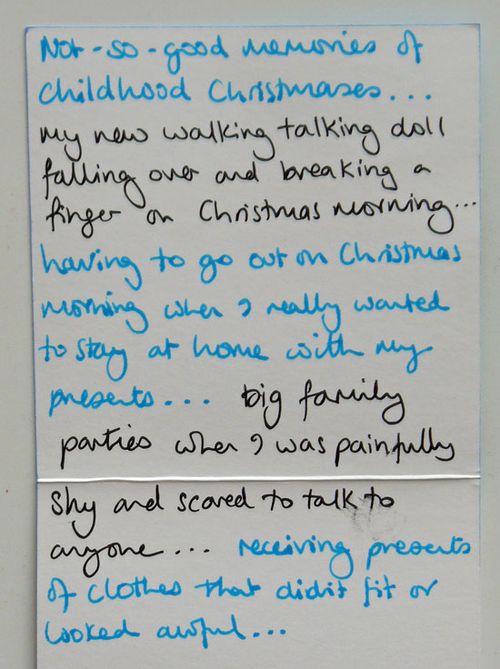 Not-so-good memories of
childhood Christmases...
my new walking talking doll
falling over and breaking a
finger on Christmas morning...
having to go out on Christmas
morning when I really wanted
to stay at home with my
presents... big family
parties when I was painfully
shy and scared to talk to
anyone... receiving presents
of clothes that didn't fit or
looked awful...